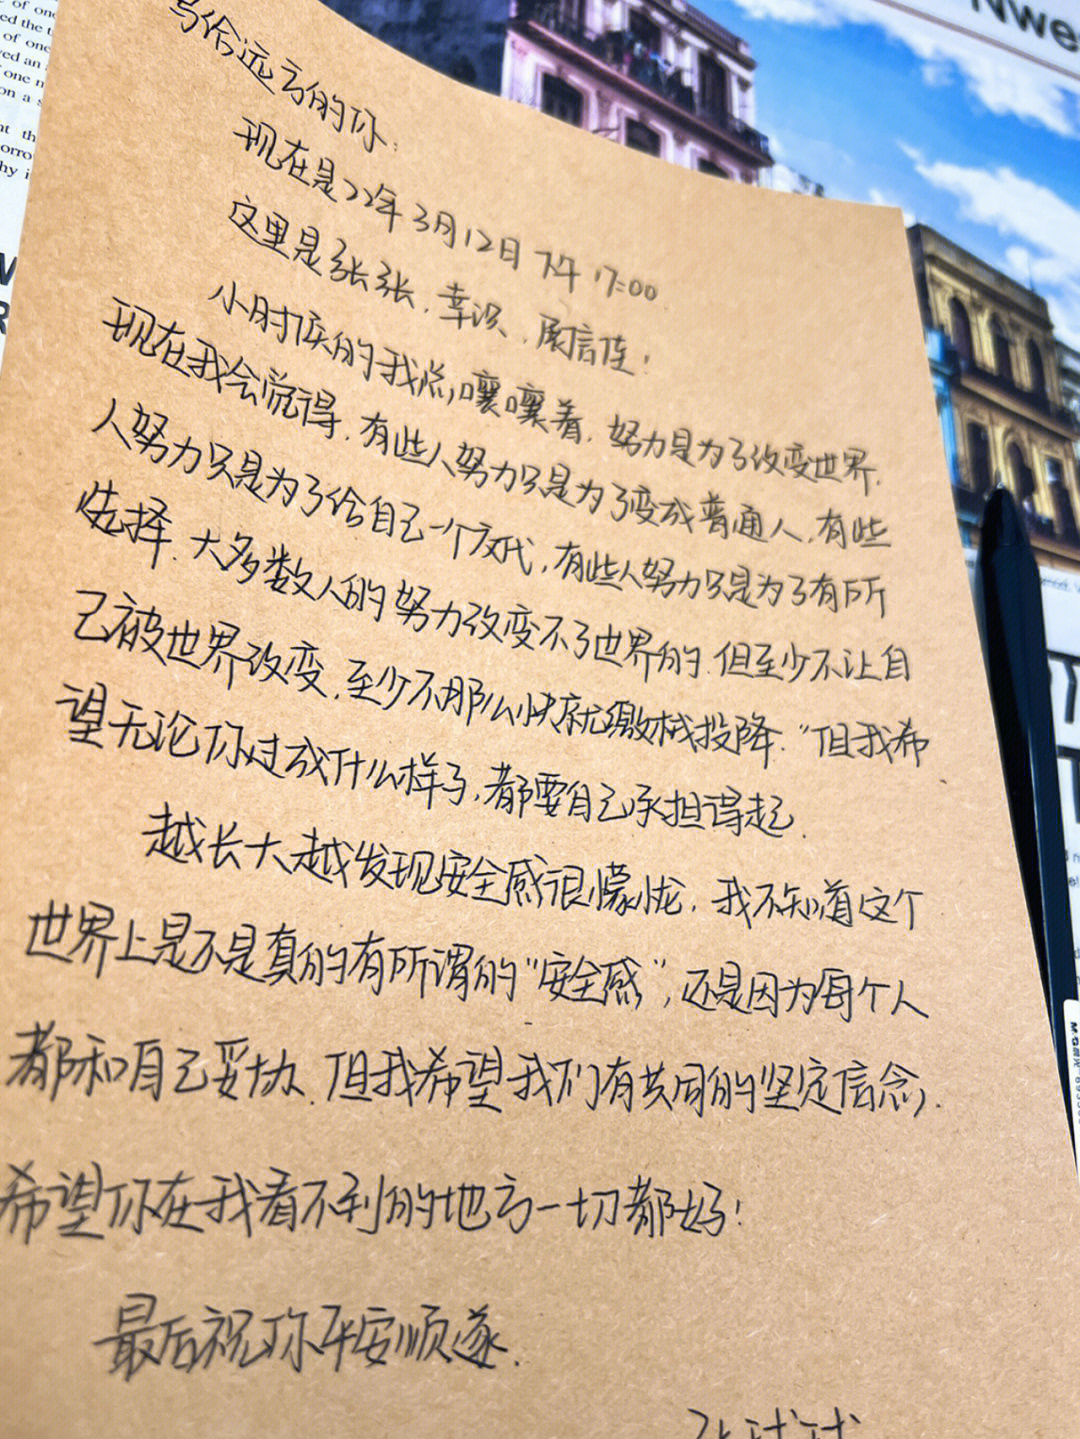 写给远方的你：
现在是22年3月12日 下午 17:00
这里是张张，幸识、展信佳！
小时候的我总嚷嚷着，努力是为了改变世界，
现在我会觉得，有些人努力只是为了变成普通人，有些
人努力只是为了给自己一个交代，有些人努力只是为了有所
选择，大多数人的努力改变不了世界的，但至少不让自
己被世界改变，至少不那么快就缴械投降."但我希
望无论你过成什么样子，都要自己承担得起.
越长大越发现安全感很懞恍，我不知道这个
世界上是不是真的有所谓的"安全感"，还是因为每个人
都和自己妥协，但我希望我们有共同的坚定信念，
希望你在我看不到的地方一切都好！
最后祝你平安顺遂.